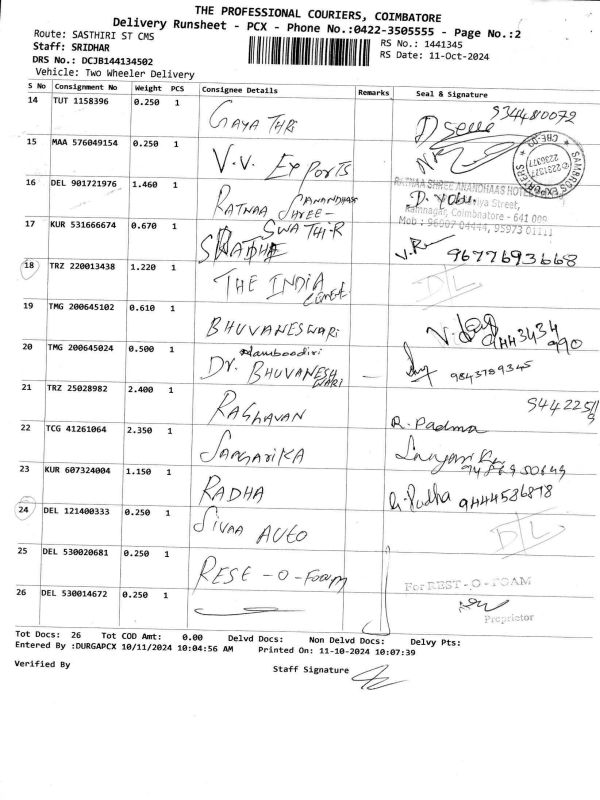 THE PROFESSIONAL COURIERS, COIMBATORE
Delivery Runsheet - PCX - Phone No.:0422-3505555 - Page No.:2
Route: SASTHIRI ST CMS
RS No.: 1441345
Staff: SRIDHAR
RS Date: 11-Oct-2024
DRS No.: DCJB144134502
Vehicle: Two Wheeler Delivery
S No Consignment No Weight PCS Consignee Details Remarks Seal & Signature
14 TUT 1158396 0.250 1 GAYATHRI 9344810072
15 MAA 576049154 0.250 1 V.V. EXPORTS
SAMBROS EXPORTERS * CBE-09 *
16 DEL 901721976 1.460 1 RATNAA SHREE- ANANDHAAS
RATHAA SHREE ANANDHAAS HOTEL
Ramnagar, Coimbatore - 641 009
Mob : 96007 04444, 95973 01111
17 KUR 531666674 0.670 1 SWATHI-R
RADHE 9677693668
18 TRZ 220013438 1.220 1 THE INDIA D/L
19 TMG 200645102 0.610 1 BHUVANESWARI 9443434
990
20 TMG 200645024 0.500 1 Dr. Namboodiri BHUVANESHWARI — 9843789345
21 TRZ 25028982 2.400 1 RAGHAVAN R. Padma
22 TCG 41261064 2.350 1 SANGARIKA
23 KUR 607324004 1.150 1 RADHA 9444586878
24 DEL 121400333 0.250 1 SIVAA AUTO D/L
25 DEL 530020681 0.250 1 RESE-O-Foam
For REST-O-FOAM
26 DEL 530014672 0.250 1
Proprietor
Tot Docs: 26 Tot COD Amt: 0.00 Delvd Docs: Non Delvd Docs: Delvy Pts:
Entered By :DURGAPCX 10/11/2024 10:04:56 AM Printed On: 11-10-2024 10:07:39
Verified By
Staff Signature